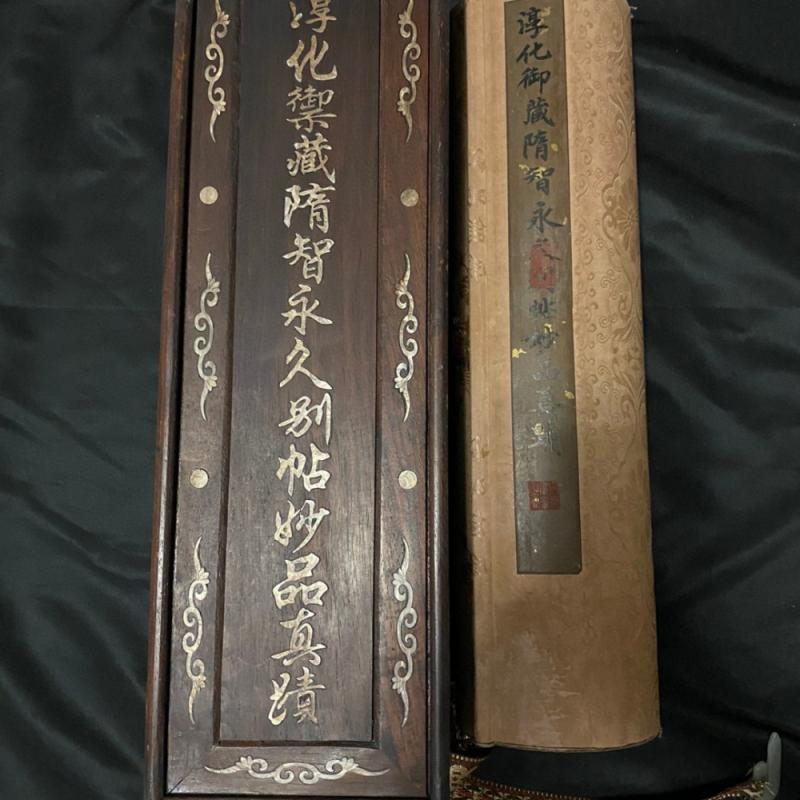 淳化禦藏隋智永久別帖妙品真蹟
淳化御藏隋智永久別帖妙品真蹟